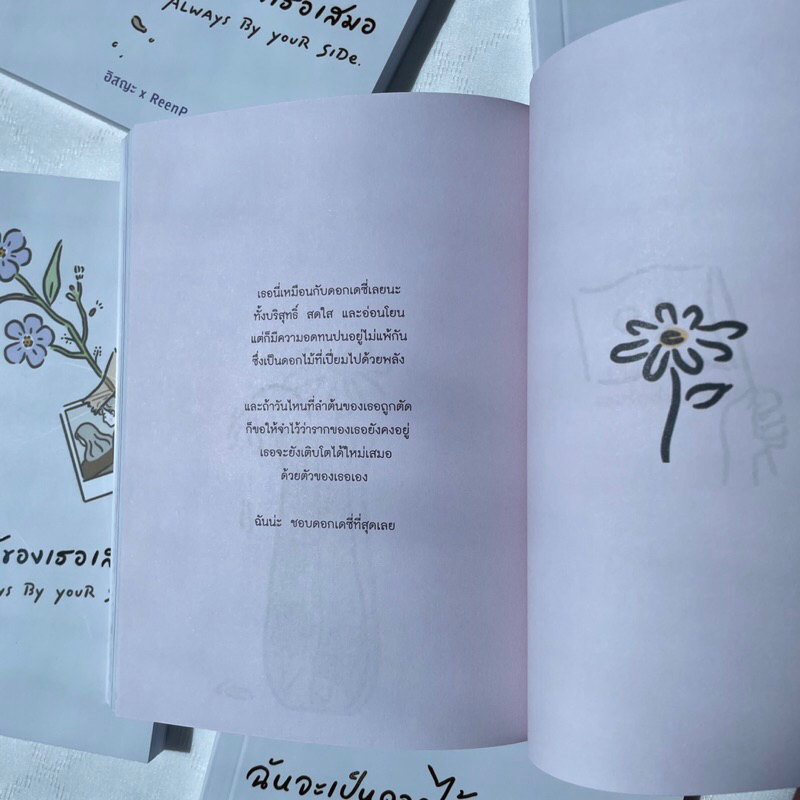 เธอเสมอ
ALWAYS BY YOUR SIDE.
อิสญะ x ReenP
เธอนี่เหมือนกับดอกเดซี่เลยนะ
ทั้งบริสุทธิ์ สดใส และอ่อนโยน
แต่ก็มีความอดทนปนอยู่ไม่แพ้กัน
ซึ่งเป็นดอกไม้ที่เปี่ยมไปด้วยพลัง
และถ้าวันไหนที่ลำต้นของเธอถูกตัด
ก็ขอให้จำไว้ว่ารากของเธอยังคงอยู่
เธอจะยังเติบโตได้ใหม่เสมอ
ด้วยตัวของเธอเอง
ฉันน่ะ ชอบดอกเดซี่ที่สุดเลย
ของเธอเ
BY YOUR
ฉันจะเป็น